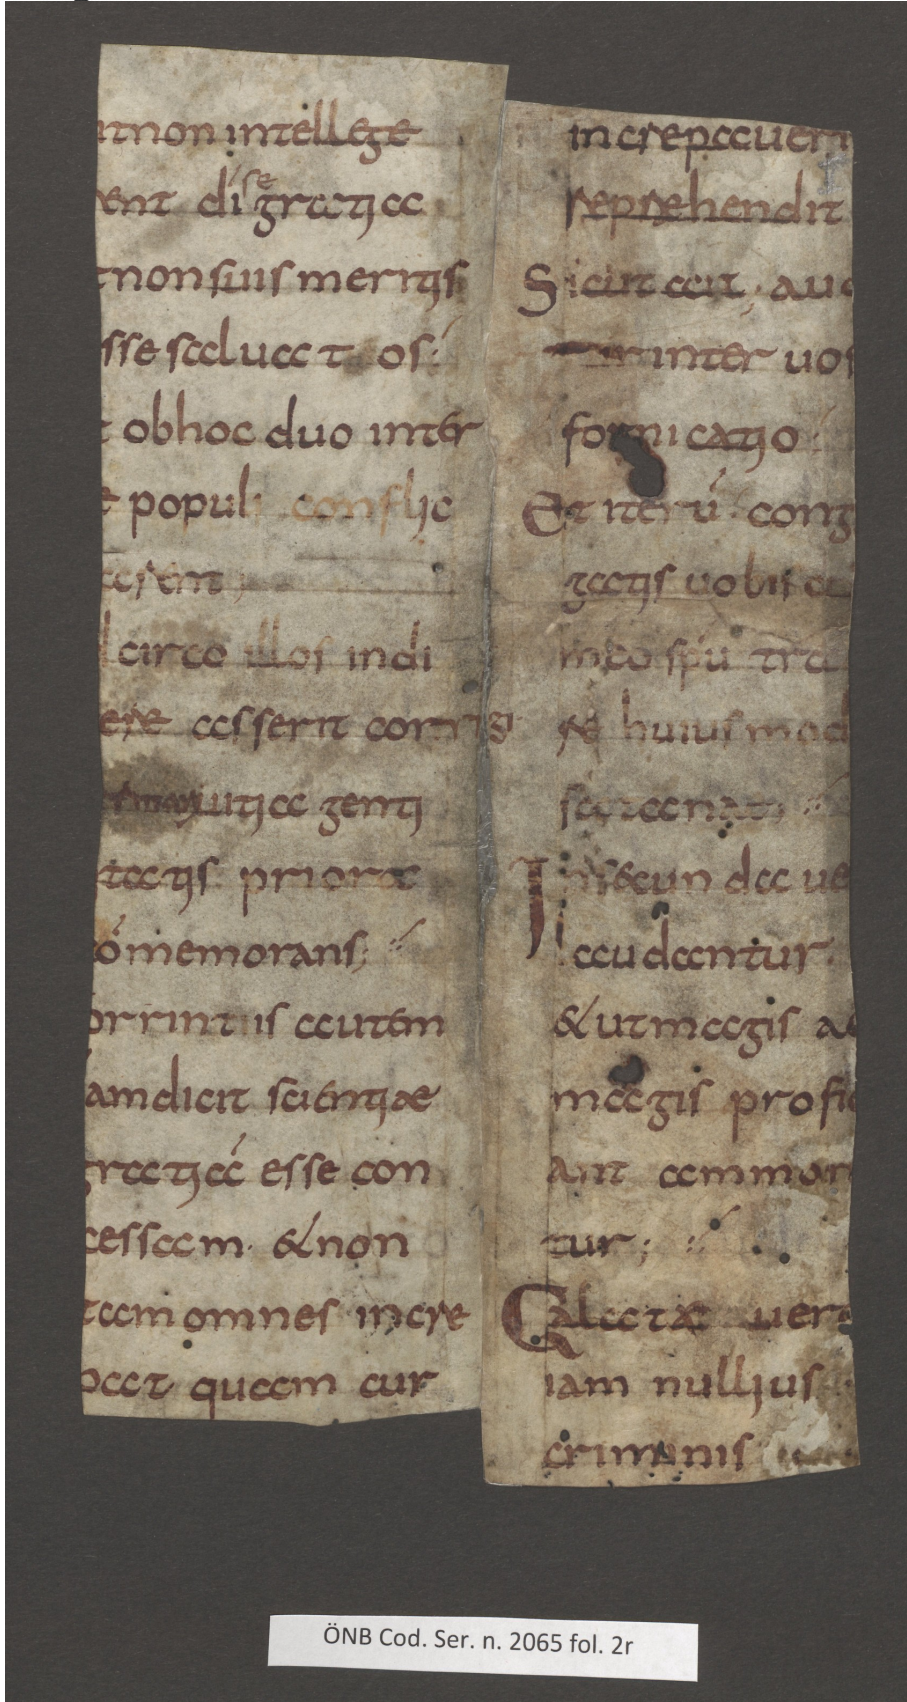 ut non intellege
rent di se gratia
t non suis meritis
sse saluatos:
t ob hoc duo inter
e populi conflic
arent;
circo illos indi
ere asserit corrigi
genti
tatis priora
cómemorans;
orrintiis autem
iam dicit scientiae
gratiá esse con
cessam. & non
tam omnes incre
pat quam cur
increpauerit
reprehendit
Sicut ait; aud
inter uos
fornicatio
Et iterú cong
gatis uobis
meo spu tra
re huiusmodi
satanae
In secunda ue
laudantur
& ut magis ac
magis profic
iant ammon
tur;
Galatae uero
iam nullius
criminis
ÖNB Cod. Ser. n. 2065 fol. 2r